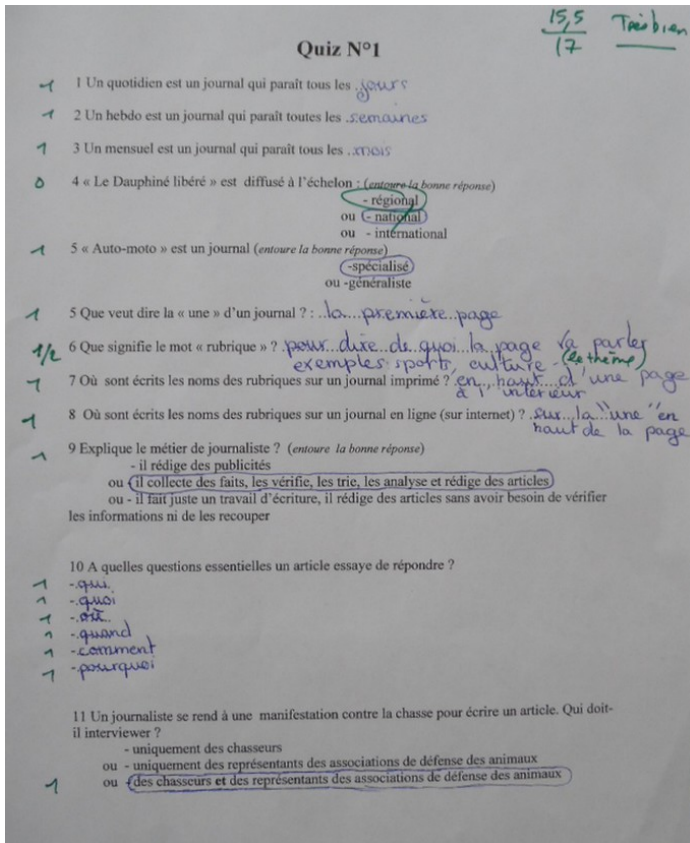 15,5 Très bien
17
Quiz N°1
1 1 Un quotidien est un journal qui paraît tous les .jours
1 2 Un hebdo est un journal qui paraît toutes les .semaines
1 3 Un mensuel est un journal qui paraît tous les ..mois
0 4 « Le Dauphiné libéré » est diffusé à l'échelon : (entoure la bonne réponse)
- régional
ou - national
ou - international
1 5 « Auto-moto » est un journal (entoure la bonne réponse)
-spécialisé
ou -généraliste
1 5 Que veut dire la « une » d'un journal ? : ..la...première..page
1/2 6 Que signifie le mot « rubrique » ? .pour...dire..de..quoi..la..page va parler
exemples sports, culture - (le thème)
1 7 Où sont écrits les noms des rubriques sur un journal imprimé ? en..haut...d'une page
à l'intérieur
1 8 Où sont écrits les noms des rubriques sur un journal en ligne (sur internet) ? .sur..la "une" en
haut de la page
1 9 Explique le métier de journaliste ? (entoure la bonne réponse)
- il rédige des publicités
ou - il collecte des faits, les vérifie, les trie, les analyse et rédige des articles
ou - il fait juste un travail d'écriture, il rédige des articles sans avoir besoin de vérifier
les informations ni de les recouper
10 A quelles questions essentielles un article essaye de répondre ?
1 -.qui.
1 -.quoi
1 -.où..
1 -.quand
1 -.comment
1 -.pourquoi
11 Un journaliste se rend à une manifestation contre la chasse pour écrire un article. Qui doit-
il interviewer ?
- uniquement des chasseurs
ou - uniquement des représentants des associations de défense des animaux
1 ou - des chasseurs et des représentants des associations de défense des animaux